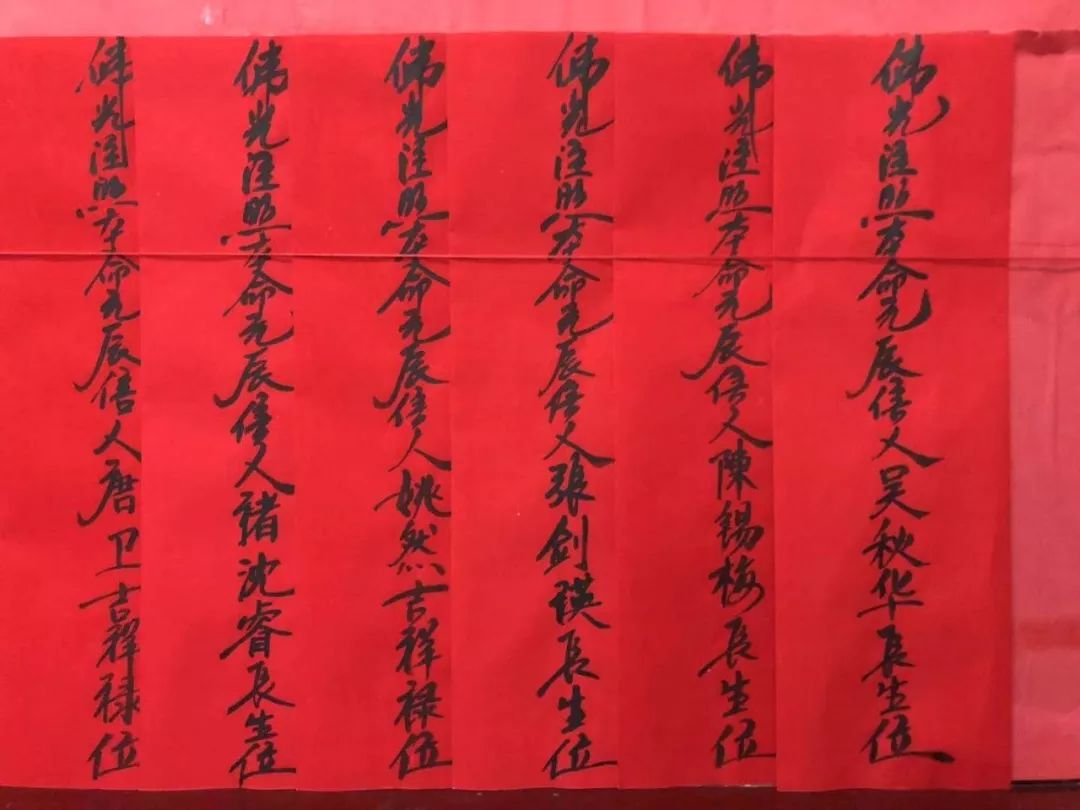 佛光注照本命元辰信人吴秋华長生位
佛光注照本命元辰信人陳錫梅長生位
佛光注照本命元辰信人張剑瑛長生位
佛光注照本命元辰信人姚然吉祥禄位
佛光注照本命元辰信人褚沈睿長生位
佛光注照本命元辰信人唐卫吉祥禄位